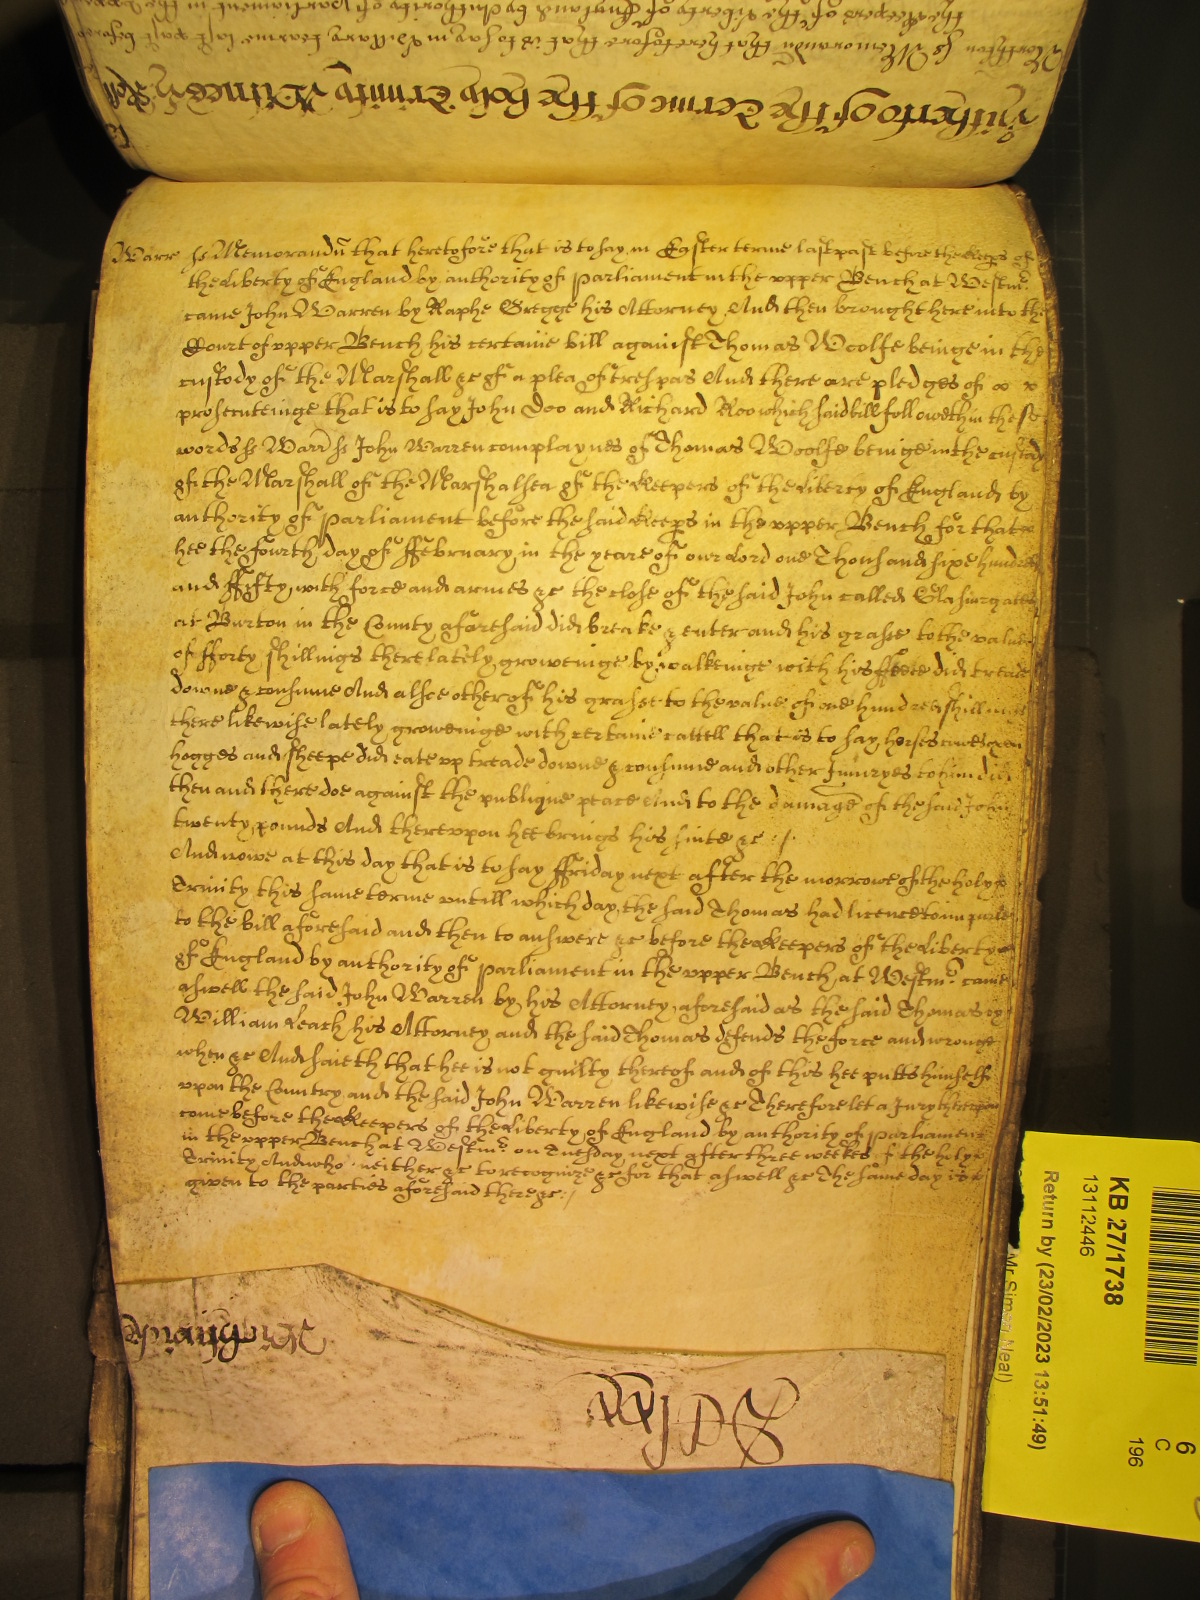 Warr ss Memorandū that heretofore that is to say in Easter terme last past before the Keeps of
the Liberty of England by authority of Parliament in the vpper Bench at Westm̄
came John Warren by Raphe Gregge his Attorney And then brought here into the
Court of vpper Bench his certaine bill against Thomas Woolfe beinge in the
custody of the Marshall &c of a plea of trespas And there are pledges of
prosecuteinge that is to say John Doo and Richard Roo which said bill followeth in these
words ss Warr ss John Warren complaynes of Thomas Woolfe beinge in the custody
of the Marshall of the Marshalsea of the Keepers of the Liberty of England by
authority of Parliament before the said Keeps in the vpper Bench for that
hee the fourth day of ffebruary in the yeare of our Lord one Thousand sixe hundred
and ffifty with force and armes &c the close of the said John called
at Burton in the County aforesaid did breake & enter and his grasse to the value
of fforty shillings there lately groweinge by walkeinge with his ffeete did treade
downe & consume And alsoe other of his grasse to the value of one hundred shillings
there likewise lately groweinge with certaine cattell that is to say horses cowes oxen
hogges and sheepe did eate vp treade downe & consume and other Iniuryes to him did
then and there doe against the publique peace And to the damage of the said John
twenty pounds And therevpon hee brings his suite &c
And nowe at this day that is to say ffriday next after the morrowe of the holy
Trinity this same terme vntill which day the said Thomas had licence to imparle
to the bill aforesaid and then to answere &c before the Keepers of the Liberty
of England by authority of Parliament in the vpper Bench at Westm̄ came
aswell the said John Warren by his Attorney aforesaid as the said Thomas by
William Leach his Attorney and the said Thomas defends the force and wronge
when &c And saieth that hee is not guilty thereof and of this hee putts himself
vpon the Country and the said John Warren likewise &c Therefore let a Jury therevpon
come before the Keepers of the Liberty of England by authority of Parliament
in the vpper Bench at Westm̄ on Tuesday next after three weekes of the holy
Trinity And who neither &c to recognize &c for that aswell &c The same day is
given to the parties aforesaid there &c
KB 27/1738
13112446
Return by (23/02/2023 13:51:49)
6
C
196